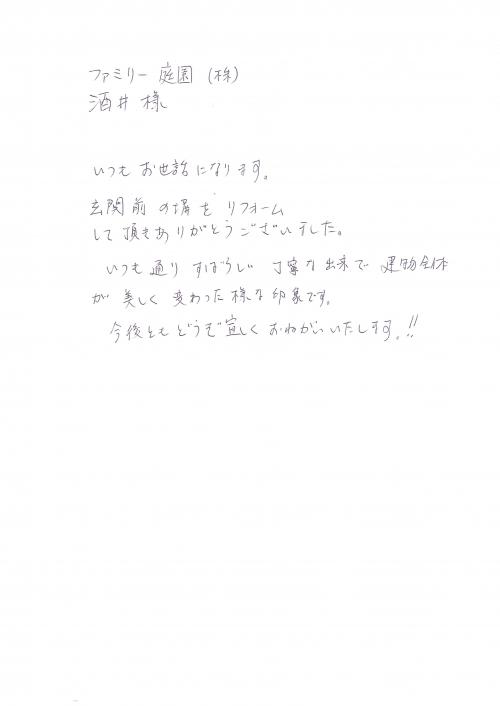 ファミリー庭園(株)
酒井様
いつもお世話になります。
玄関前の塀をリフォーム
して頂きありがとうございました。
いつも通りすばらしい丁寧な出来で建物全体
が美しく変わった様な印象です。
今後ともどうぞ宜しくおねがいいたします。!!